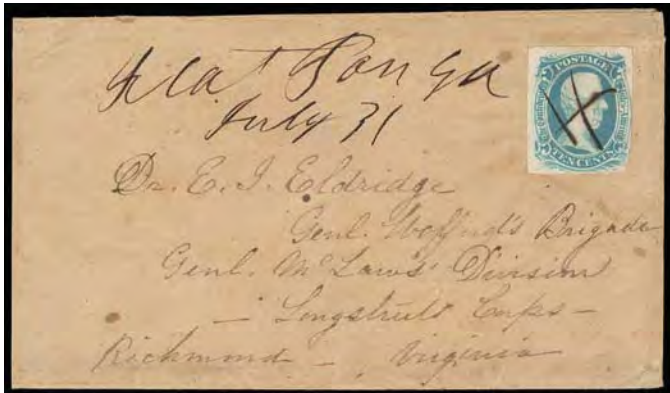 Flat Pon Ga
July 31
POSTAGE
TEN CENTS
Dr. E. J. Eldridge
Genl. Wofford's Brigade
Genl. McLaws' Division
— Longstreets Corps —
Richmond — Virginia